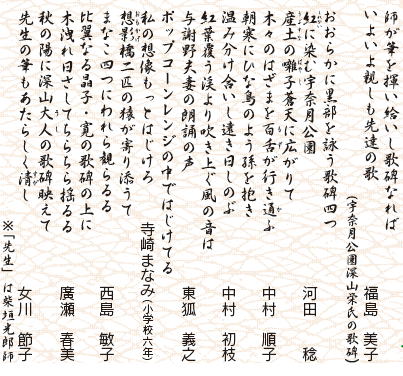 師が筆を揮い給いし歌碑なれば
いよいよ親しも先達の歌
福島 美子
おおらかに黒部を詠う歌碑四つ
(宇奈月公園深山栄氏の歌碑)
紅に染む宇奈月公園
河田 稔
産土の囃子蒼天に広がりて
木々のはざまを百舌が行き通ふ
中村 順子
朝寒にひな鳥のよう孫を抱き
温み分け合いし遠き日しのぶ
中村 初枝
紅葉覆う渓より吹き上ぐ風の音は
与謝野夫妻の朗誦の声
東狐 義之
ポップコーンレンジの中ではじけてる
私の想像もっとはじけろ
寺崎 まなみ(小学校六年)
想影橋二匹の猿が寄り添うて
まなこ四つにわれら観らるる
西島 敏子
比翼なる晶子・寛の歌碑の上に
木洩れ日さしてちらちら揺るる
廣瀬 春美
秋の陽に深山大人の歌碑映えて
先生の筆もあたらしく清し
女川 節子
※「先生」は柴垣光郎師